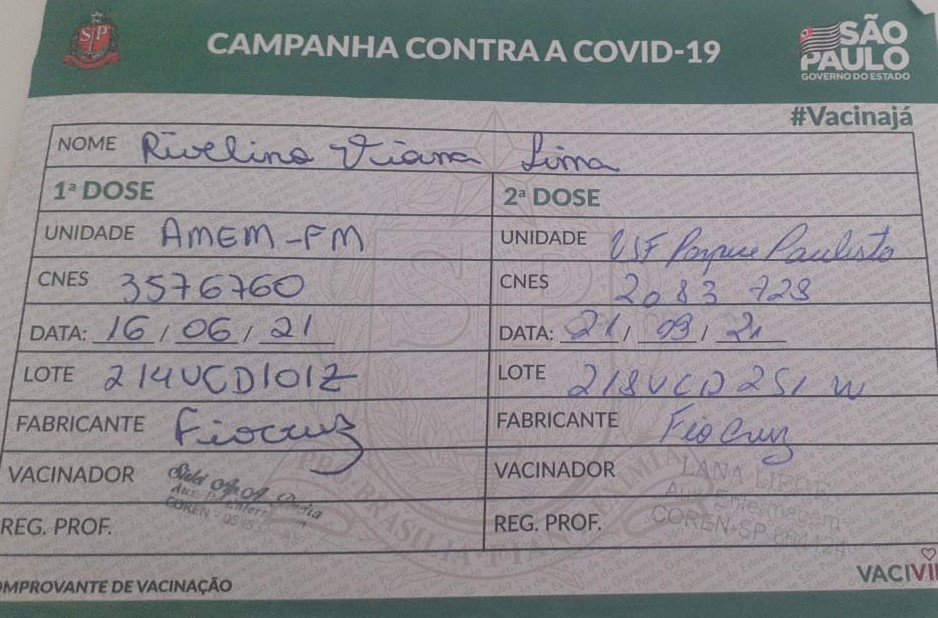 SP
CAMPANHA CONTRA A COVID-19
SÃO PAULO
GOVERNO DO ESTADO
#Vacinajá
NOME Rivelino Viana Lima
1ª DOSE
2ª DOSE
UNIDADE AMEM-FM
UNIDADE USF Parque Paulista
CNES 3576760
CNES 2083 728
DATA: 16 / 06 / 21
DATA: 21 / 09 / 21
LOTE 214VCD101Z
LOTE 218VCD251W
FABRICANTE Fiocruz
FABRICANTE Fiocruz
VACINADOR
VACINADOR LANA
Aux. Enfermagem
REG. PROF. COREN
REG. PROF. COREN-SP
COMPROVANTE DE VACINAÇÃO
VACIVI